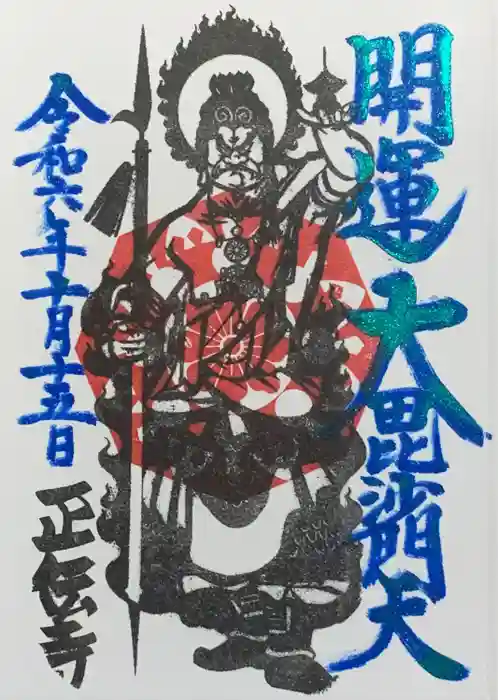 開運大毘沙門天
令和六年十一月十五日
正伝寺